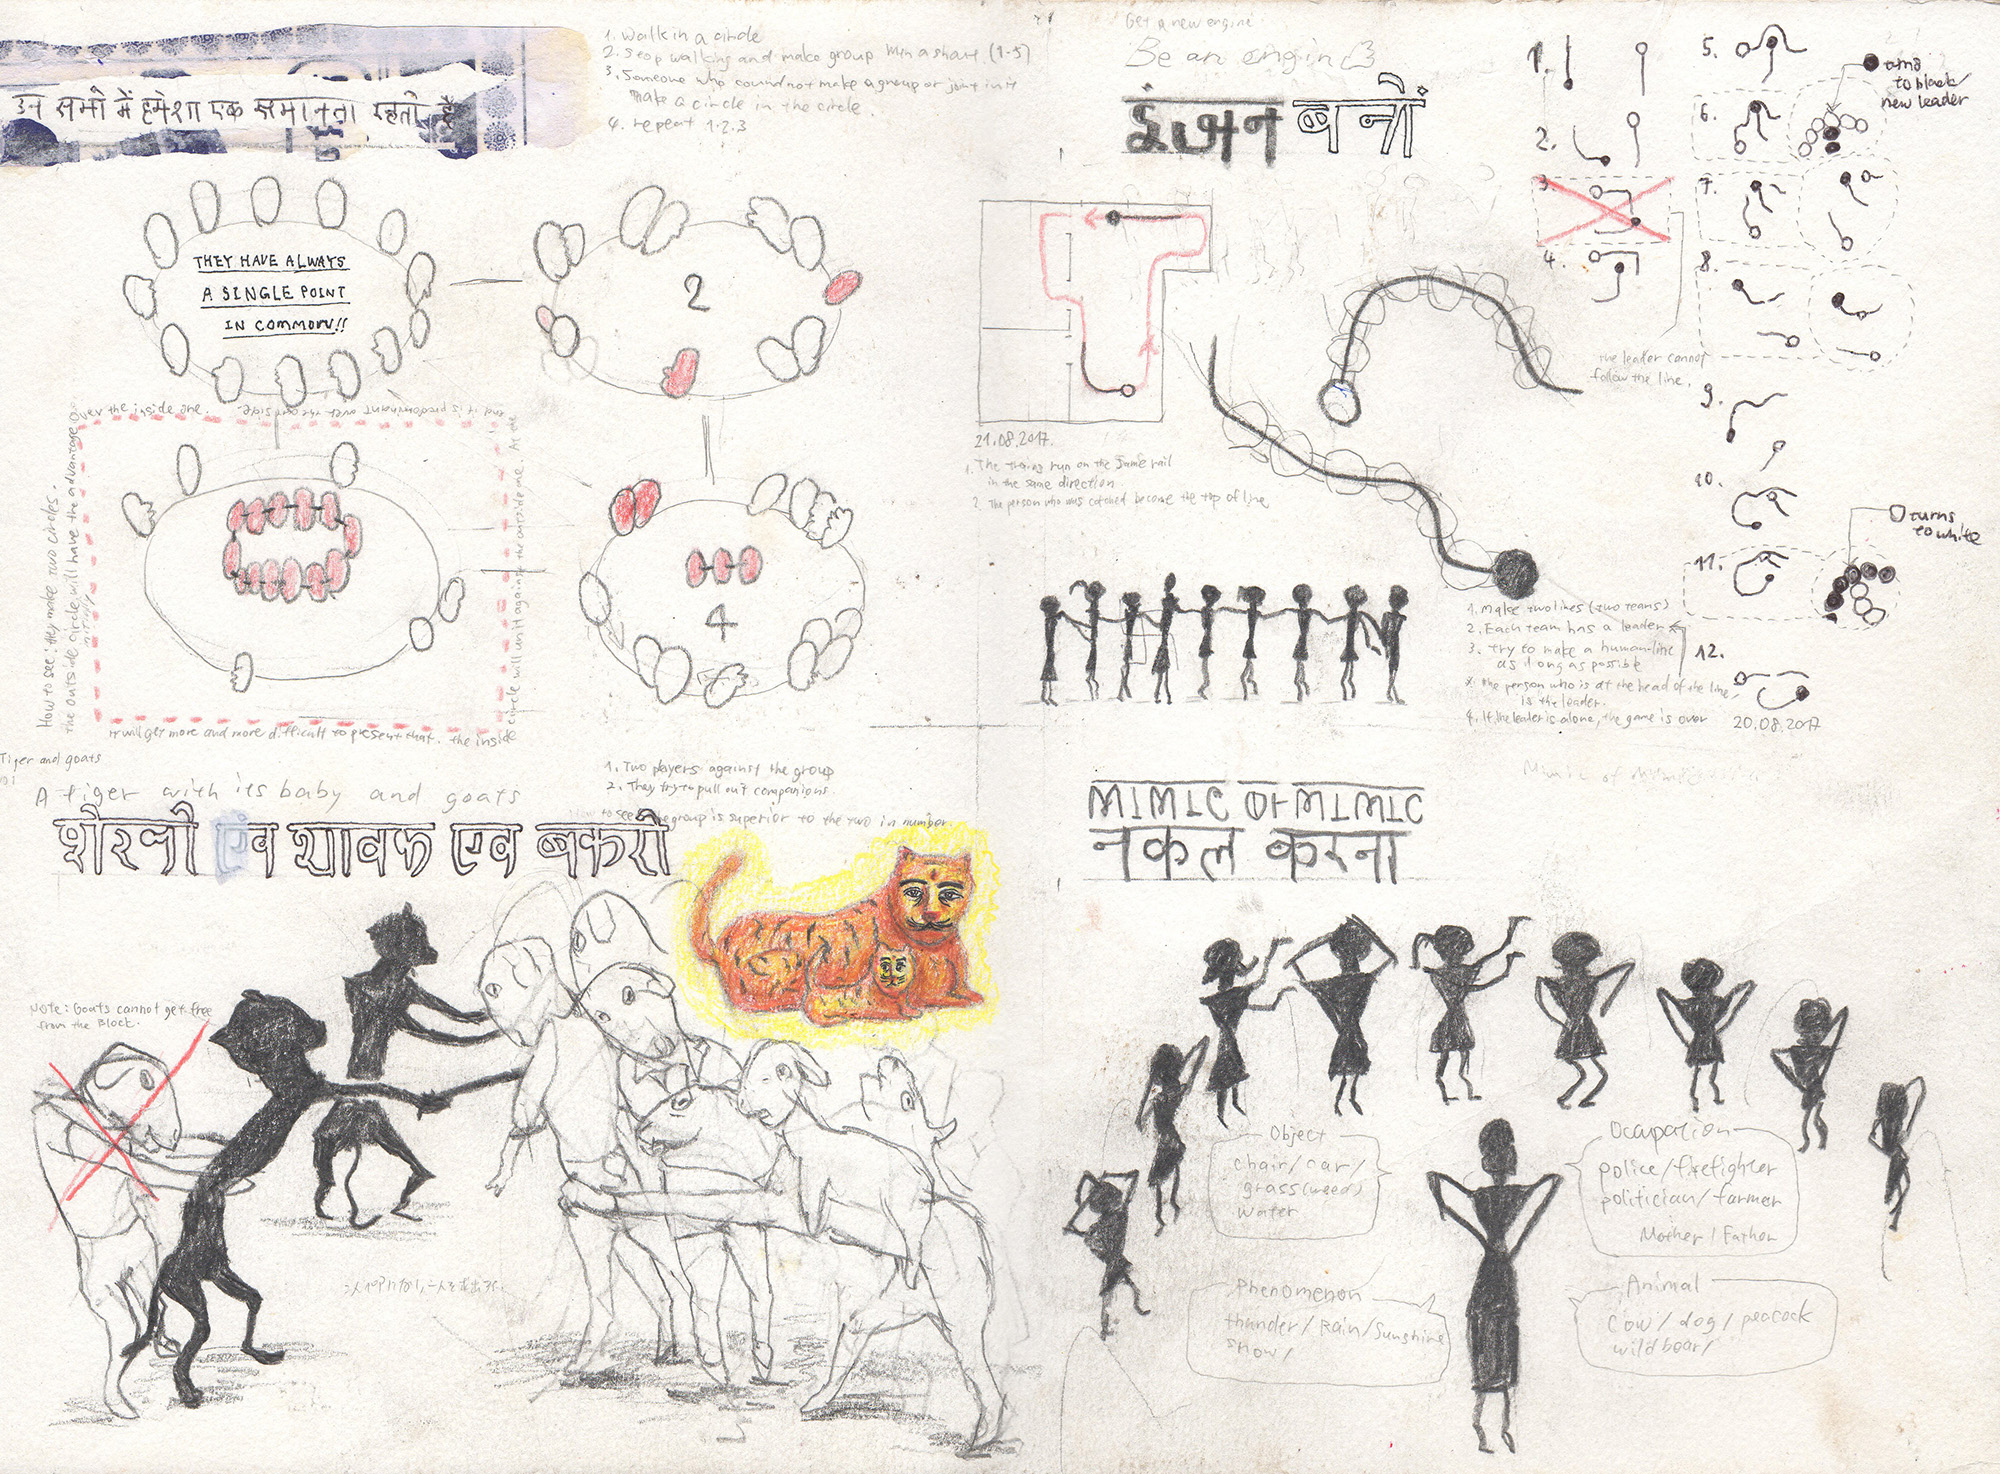 उन सभी में हमेशा एक समानता रहती है
1. Walk in a circle
2. Stop walking and make group when a shout (1-5)
3. Someone who could not make a group or joint in it
make a circle in the circle.
4. repeat 1.2.3
THEY HAVE ALWAYS
A SINGLE POINT
IN COMMON!!
2
4
How to see: they make two circles.
the outside circle will have the advantage
over the inside one.
It will get more and more difficult to present that. the inside
circle will unit against the outside one. At the
and it is predominant over the outside
Get a new engine
Be an engin
इंजन बनों
21.08.2017.
1. The trains run on the same rail
in the same direction.
2. The person who was catched become the top of line
1.
2.
3.
4.
5.
6.
7.
8.
9.
10.
11.
12.
to black/
new leader
the leader cannot
follow the line.
turns
to white
1. Make two lines (two teams)
2. Each team has a leader
3. try to make a human-line
as long as possible
* the person who is at the head of the line,
is the leader.
4. If the leader is alone, the game is over
20.08.2017
Tiger and goats
A tiger with its baby and goats
1. Two players against the group
2. They try to pull out companions.
How to see: group is superior to the two in number
शेरनी एंव शावक एंव बकरी
Note: Goats cannot get free
from the Block.
Mimic of
MIMIC OF MIMIC
नकल करना
Object
chair/car/
grass(weed)
water
Ocupation
police/firefighter
politician/farmer
Mother/Father
Phenomenon
thunder/Rain/Sunshine
snow/
Animal
cow/dog/peacock
wild boar/